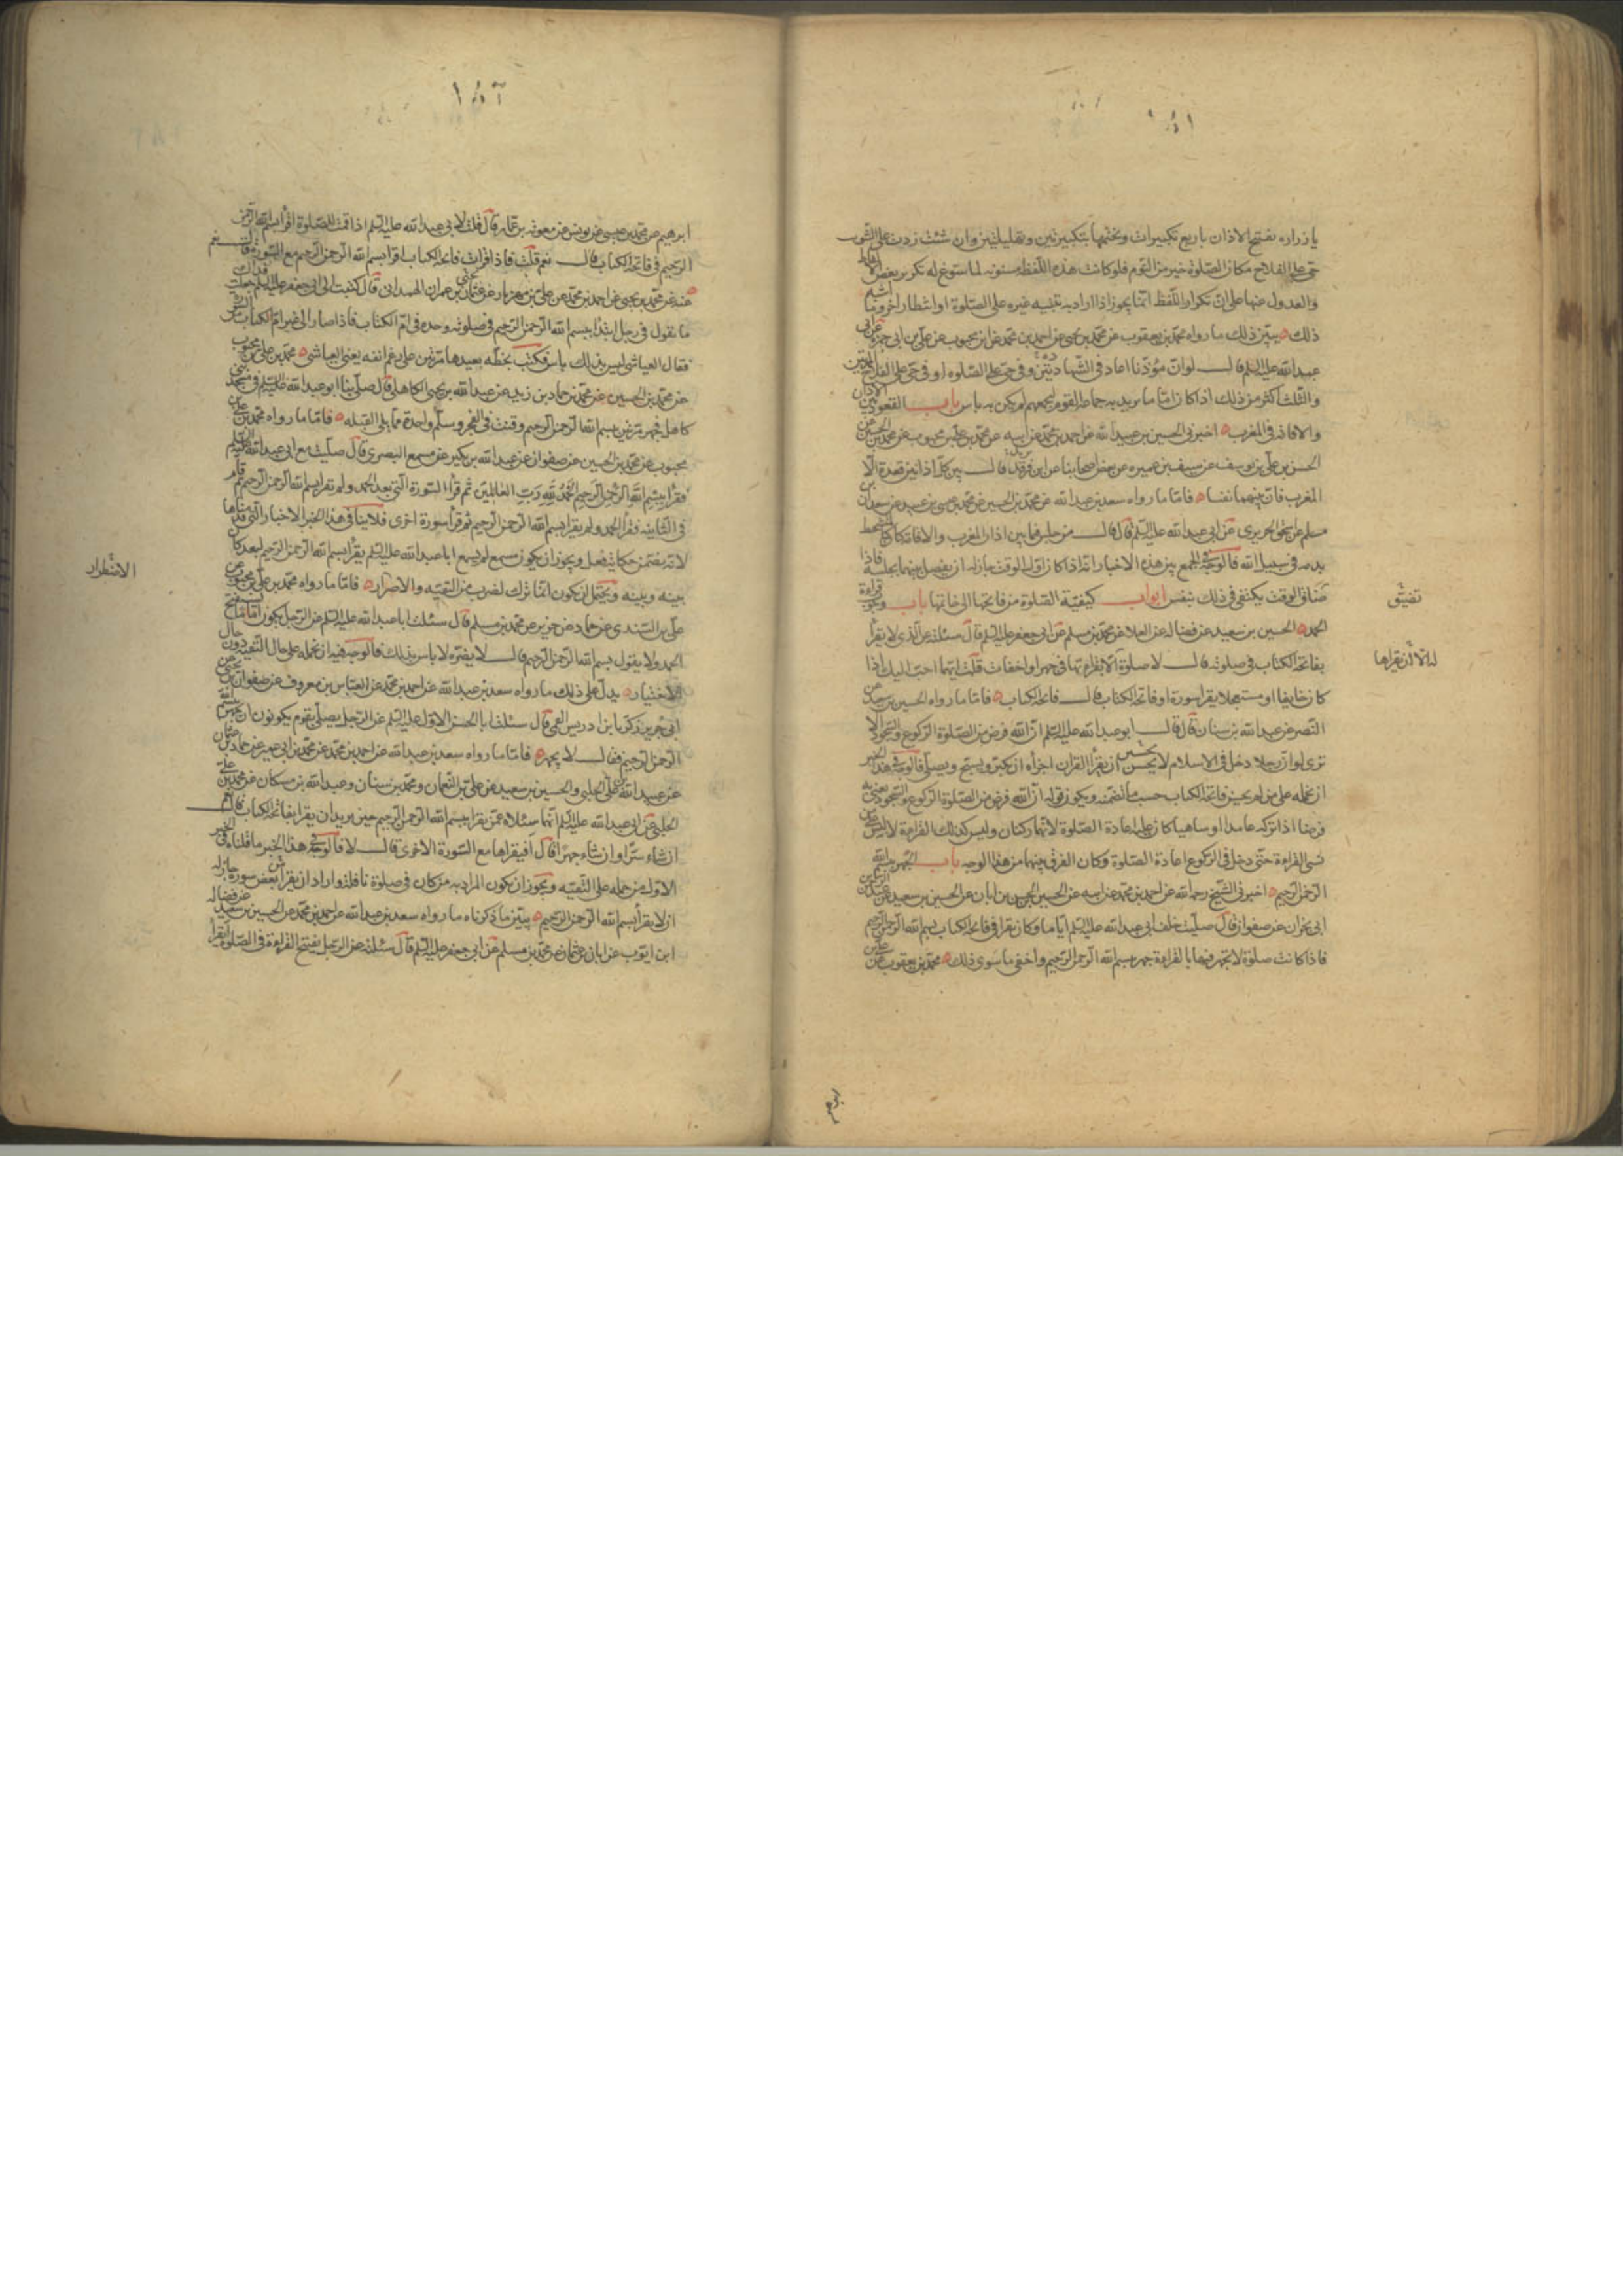 يا زراره تفتتح الاذان باربع تكبيرات وتختمها بتكبيرتين وتهليلتين وان شئت زدت على التثويب
حى على الفلاح مكان الصلوة خير من النوم فلو كانت هذه اللفظة مسنونه لما سوغ له تكرير بعض الالفاظ
والعدول عنها على ان تكرار اللفظ انما يجوز اذا اراد به تنبيه غيره على الصلوة او انتظار اخر وما اشبه
ذلك يبين ذلك ما رواه محمد بن يعقوب عن محمد بن يحيى عن احمد بن محمد عن ابن محبوب عن على بن ابى حمزه عن ابى
عبد الله عليه السلم قال لو ان مؤذنا اعاد فى الشهادتين وفى حى على الصلوه او فى حى على الفلاح المرتين
والثلث اكثر من ذلك اذا كان اماما يريد به جماعة القوم ليجمعهم لم يكن به باس باب القعود بين الاذان
والاقامه فى المغرب اخبرنى الحسين بن عبيد الله عن احمد بن محمد عن ابيه عن محمد بن على بن محبوب عن محمد بن الحسين عن
الحسن بن على بن يوسف عن سيف بن عميره عن بعض اصحابنا عن ابن فرقد قال بين كل اذانين قعدة الا
المغرب فان بينهما نفسا فاما ما رواه سعد بن عبد الله عن محمد بن الحسين عن محمد بن عيسى بن عبيد عن سعدان بن
مسلم عن اسحق الجريرى عن ابى عبد الله عليه السلم قال قال من جلس فيما بين اذان المغرب والاقامة كان كالمتشحط
بدمه فى سبيل الله فالوجه فى الجمع بين هذه الاخبار انه اذا كان اول الوقت جاز له ان يفصل بينهما بجلسة فاذا
ضاق الوقت يكتفى فى ذلك بنفس ابواب كيفية الصلوة من فاتحتها الى خاتمتها باب وجوب قراءة
تضيق
الحمد الحسين بن سعيد عن فضاله عن العلا عن محمد بن مسلم عن ابى جعفر عليه السلم قال سئلته عن الذى لا يقرأ
بفاتحة الكتاب فى صلوته قال لا صلوة له الا ان يقرا بها فى جهر او اخفات قلت ايهما احب اليك اذا
له الا ان يقراها
كان خايفا او مستعجلا يقرا سورة او فاتحة الكتاب قال فاتحة الكتاب فاما ما رواه الحسين بن سعيد عن
النضر عن عبد الله بن سنان قال قال ابو عبد الله عليه السلم ان الله فرض من الصلوة الركوع والسجود الا
ترى لو ان رجلا دخل فى الاسلام لا يحسن ان يقرأ القران اجزأه ان يكبر ويسبح ويصلى فالوجه فى هذا الخبر
ان نحمله على من لم يحسن فاتحة الكتاب حسب ما تضمنه ويكون قوله ان الله فرض من الصلوة الركوع والسجود يعنى به
فرضا اذا تركه عامدا او ساهيا كان عليه اعادة الصلوة لانهما ركنان وليس كذلك القراءة لان من
نسى القراءة حتى دخل فى الركوع اعادة الصلوة وكان الفرق بينهما من هذا الوجه باب الجهر ببسم الله
الرحمن الرحيم اخبرنى الشيخ رحمه الله عن احمد بن محمد عن ابيه عن الحسين بن الحسن بن ابان عن الحسين بن سعيد عن عبد الرحمن بن
ابى نجران عن صفوان قال صليت خلف ابى عبد الله عليه السلم اياما وكان يقرا فى فاتحة الكتاب بسم الله الرحمن الرحيم
فاذا كانت صلوة لا يجهر فيها بالقراءة جهر ببسم الله الرحمن الرحيم واخفى ما سوى ذلك محمد بن يعقوب عن على بن
ابرهيم
ابرهيم عن محمد بن عيسى عن يونس عن معوية بن عمار قال قلت لابى عبد الله عليه السلم اذا قمت للصلوة اقرأ بسم الله الرحمن
الرحيم فى فاتحة الكتاب قال نعم قلت فاذا قرات فاتحة الكتاب اقرا بسم الله الرحمن الرحيم مع السورة قال نعم
عنه عن محمد بن يحيى عن احمد بن محمد عن على بن مهزيار عن يحيى بن عمران الهمدانى قال كتبت الى ابى جعفر عليه السلم جعلت فداك
ما تقول فى رجل ابتدأ ببسم الله الرحمن الرحيم فى صلوته وحده فى ام الكتاب فاذا صار الى غير ام الكتاب من السورة تركها
فقال العياشى ليس بذلك باس فكتب بخطه يعيدها مرتين على رغم انفه يعنى العياشى محمد بن على بن محبوب
عن محمد بن الحسين عن محمد بن حماد بن زيد عن عبد الله بن يحيى الكاهلى قال صلى بنا ابو عبد الله عليه السلم فى مسجد بنى
كاهل فجهر مرتين ببسم الله الرحمن الرحيم وقنت فى الفجر وسلم واحدة مما يلى القبله فاما ما رواه محمد بن على بن
محبوب عن محمد بن الحسين عن صفوان عن عبد الله بن بكير عن مسمع البصرى قال صليت مع ابى عبد الله عليه السلم
فقرأ بسم الله الرحمن الرحيم الحمد لله رب العالمين ثم قرأ السورة التى بعد الحمد ولم يقرا بسم الله الرحمن الرحيم ثم قام
فى الثانيه فقرأ الحمد ولم يقرا بسم الله الرحمن الرحيم ثم قرأ سورة اخرى فلا ينافى هذا الخبر الاخبار التى قدمناها
لانه يتضمن حكاية فعل ويجوز ان يكون مسمع لم يسمع ابا عبد الله عليه السلم يقرأ بسم الله الرحمن الرحيم لبعد كان
بينه وبينه ويحتمل ان يكون انما ترك لضرب من التقيه والاضرار فاما ما رواه محمد بن على بن محبوب عن
الاضطرار
على بن السندى عن حماد عن حريز عن محمد بن مسلم قال سئلت ابا عبد الله عليه السلم عن الرجل يكون اماما يستفتح
الحمد ولا يقول بسم الله الرحمن الرحيم قال لا يضره لا باس بذلك فالوجه فيه ان نحمله على حال التقية دون حال
الاختيار يدل على ذلك ما رواه سعد بن عبد الله عن احمد بن محمد عن العباس بن معروف عن صفوان بن يحيى عن
ابى جرير زكريا ابن ادريس القمى قال سئلت ابا الحسن الاول عليه السلم عن الرجل يصلى بقوم يكرهون ان يجهر ببسم الله
الرحمن الرحيم فقال لا يجهر فاما ما رواه سعد بن عبد الله عن احمد بن محمد عن محمد بن ابى عمير عن حماد بن عثمان
عن عبيد الله بن على الحلبى والحسين بن سعيد عن على بن النعمان ومحمد بن سنان وعبد الله بن مسكان عن محمد بن على
الحلبى عن ابى عبد الله عليه السلم انهما سئلاه عمن يقرا بسم الله الرحمن الرحيم حين يريد ان يقرا بفاتحة الكتاب قال نعم
ان شاء سرا وان شاء جهرا قال افيقراها مع السورة الاخرى قال لا فالوجه فى هذا الخبر ما قلناه فى الخبر
الاول من حمله على التقيه ويجوز ان يكون المراد به من كان فى صلوة نافلة واراد ان يقرا بعض سورة جاز له
ان لا يقرأ بسم الله الرحمن الرحيم يبين ما ذكرناه ما رواه سعد بن عبد الله عن احمد بن محمد عن الحسين بن سعيد عن فضاله
ابن ايوب عن ابان بن عثمان عن محمد بن مسلم عن ابى جعفر عليه السلم قال سئلته عن الرجل يفتتح القراءة فى الصلوة ايقرأ